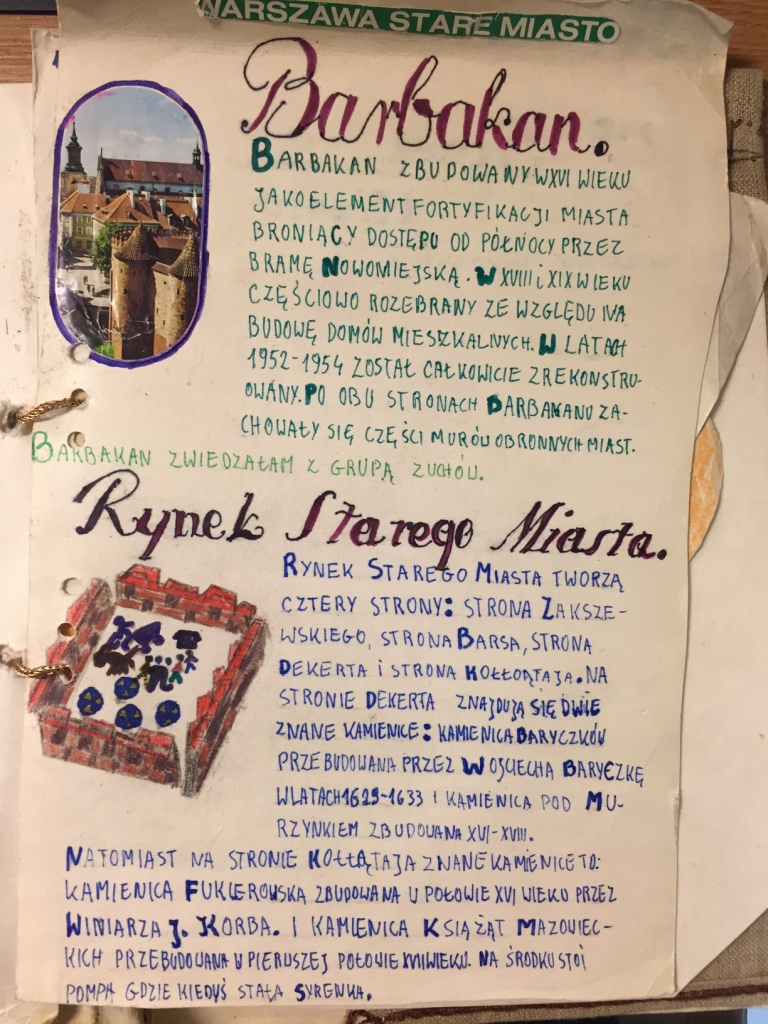 WARSZAWA STARE MIASTO
Barbakan.
BARBAKAN ZBUDOWANY W XVI WIEKU
JAKO ELEMENT FORTYFIKACJI MIASTA
BRONIĄCY DOSTĘPU OD PÓŁNOCY PRZEZ
BRAMĘ NOWOMIEJSKĄ. W XVIII i XIX WIEKU
CZĘŚCIOWO ROZEBRANY ZE WZGLĘDU NA
BUDOWĘ DOMÓW MIESZKALNYCH. W LATACH
1952-1954 ZOSTAŁ CAŁKOWICIE ZREKONSTRU-
OWANY. PO OBU STRONACH BARBAKANU ZA-
CHOWAŁY SIĘ CZĘŚCI MURÓW OBRONNYCH MIAST.
BARBAKAN ZWIEDZAŁAM Z GRUPĄ ZUCHÓW.
Rynek Starego Miasta.
RYNEK STAREGO MIASTA TWORZĄ
CZTERY STRONY: STRONA ZAKSZE-
WSKIEGO, STRONA BARSA, STRONA
DEKERTA i STRONA KOŁŁĄTAJA. NA
STRONIE DEKERTA ZNAJDUJĄ SIĘ DWIE
ZNANE KAMIENICE: KAMIENICA BARYCZKÓW
PRZEBUDOWANA PRZEZ WOJCIECHA BARYCZKĘ
W LATACH 1629-1633 I KAMIENICA POD MU-
RZYNKIEM ZBUDOWANA XVI-XVIII.
NATOMIAST NA STRONIE KOŁŁĄTAJA ZNANE KAMIENICE TO:
KAMIENICA FUKIEROWSKA ZBUDOWANA W POŁOWIE XVI WIEKU PRZEZ
WINIARZA J. KORBA. I KAMIENICA KSIĄŻĄT MAZOWIEC-
KICH PRZEBUDOWANA W PIERWSZEJ POŁOWIE XVII WIEKU. NA ŚRODKU STOI
POMPA GDZIE KIEDYŚ STAŁA SYRENKA.